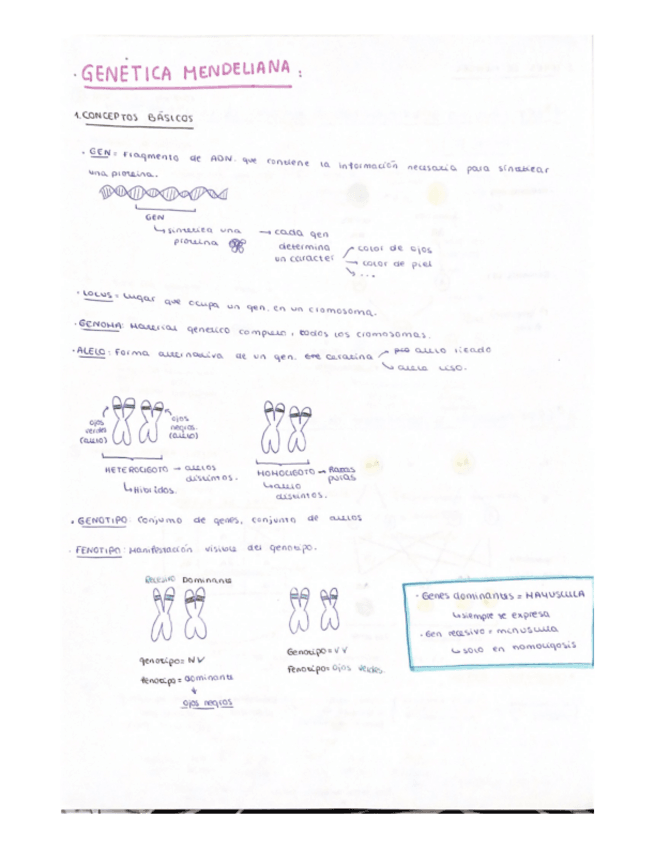 · GENÉTICA MENDELIANA:
1. CONCEPTOS BÁSICOS
· GEN = Fragmento de ADN. que contiene la información necesaria para sintetizar
una proteína.
GEN
↳ sintetiza una → cada gen
proteína determina → color de ojos
un carácter → color de piel
↘ ...
· LOCUS = Lugar que ocupa un gen. en un cromosoma.
· GENOMA: Material genético completo, todos los cromosomas.
· ALELO: Forma alternativa de un gen. → alelo rizado
↘ alelo liso.
ojos verdes (alelo)
ojos negros. (alelo)
HETEROCIGOTO → alelos
distintos.
↳ Híbridos.
HOMOCIGOTO → Razas
puras
↳ alelo
distintos.
· GENOTIPO: Conjunto de genes, conjunto de alelos
· FENOTIPO: Manifestación visible del genotipo.
Recesivo Dominante
genotipo = NV
fenotipo = dominante
↓
ojos negros
Genotipo = VV
Fenotipo = Ojos verdes.
· Genes dominantes = MAYUSCULA
↳ siempre se expresa
· Gen recesivo = minuscula
↳ solo en homocigosis